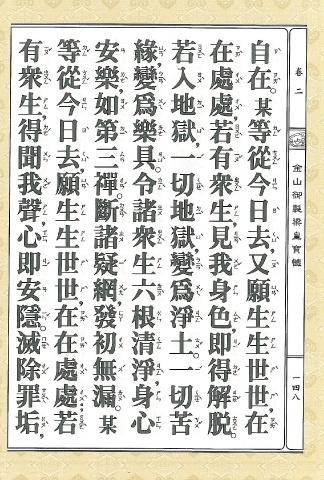 卷二
金山御製梁皇寶懺
一四八
自在。某等從今日去，又願生生世世，在
在處處，若有眾生，見我身色，即得解脫。
若入地獄，一切地獄，變爲淨土。一切苦
緣，變爲樂具。令諸眾生六根清淨，身心
安樂，如第三禪。斷諸疑網，發初無漏。某
等從今日去，願生生世世，在在處處，若
有眾生，得聞我聲，心即安隱。滅除罪垢，